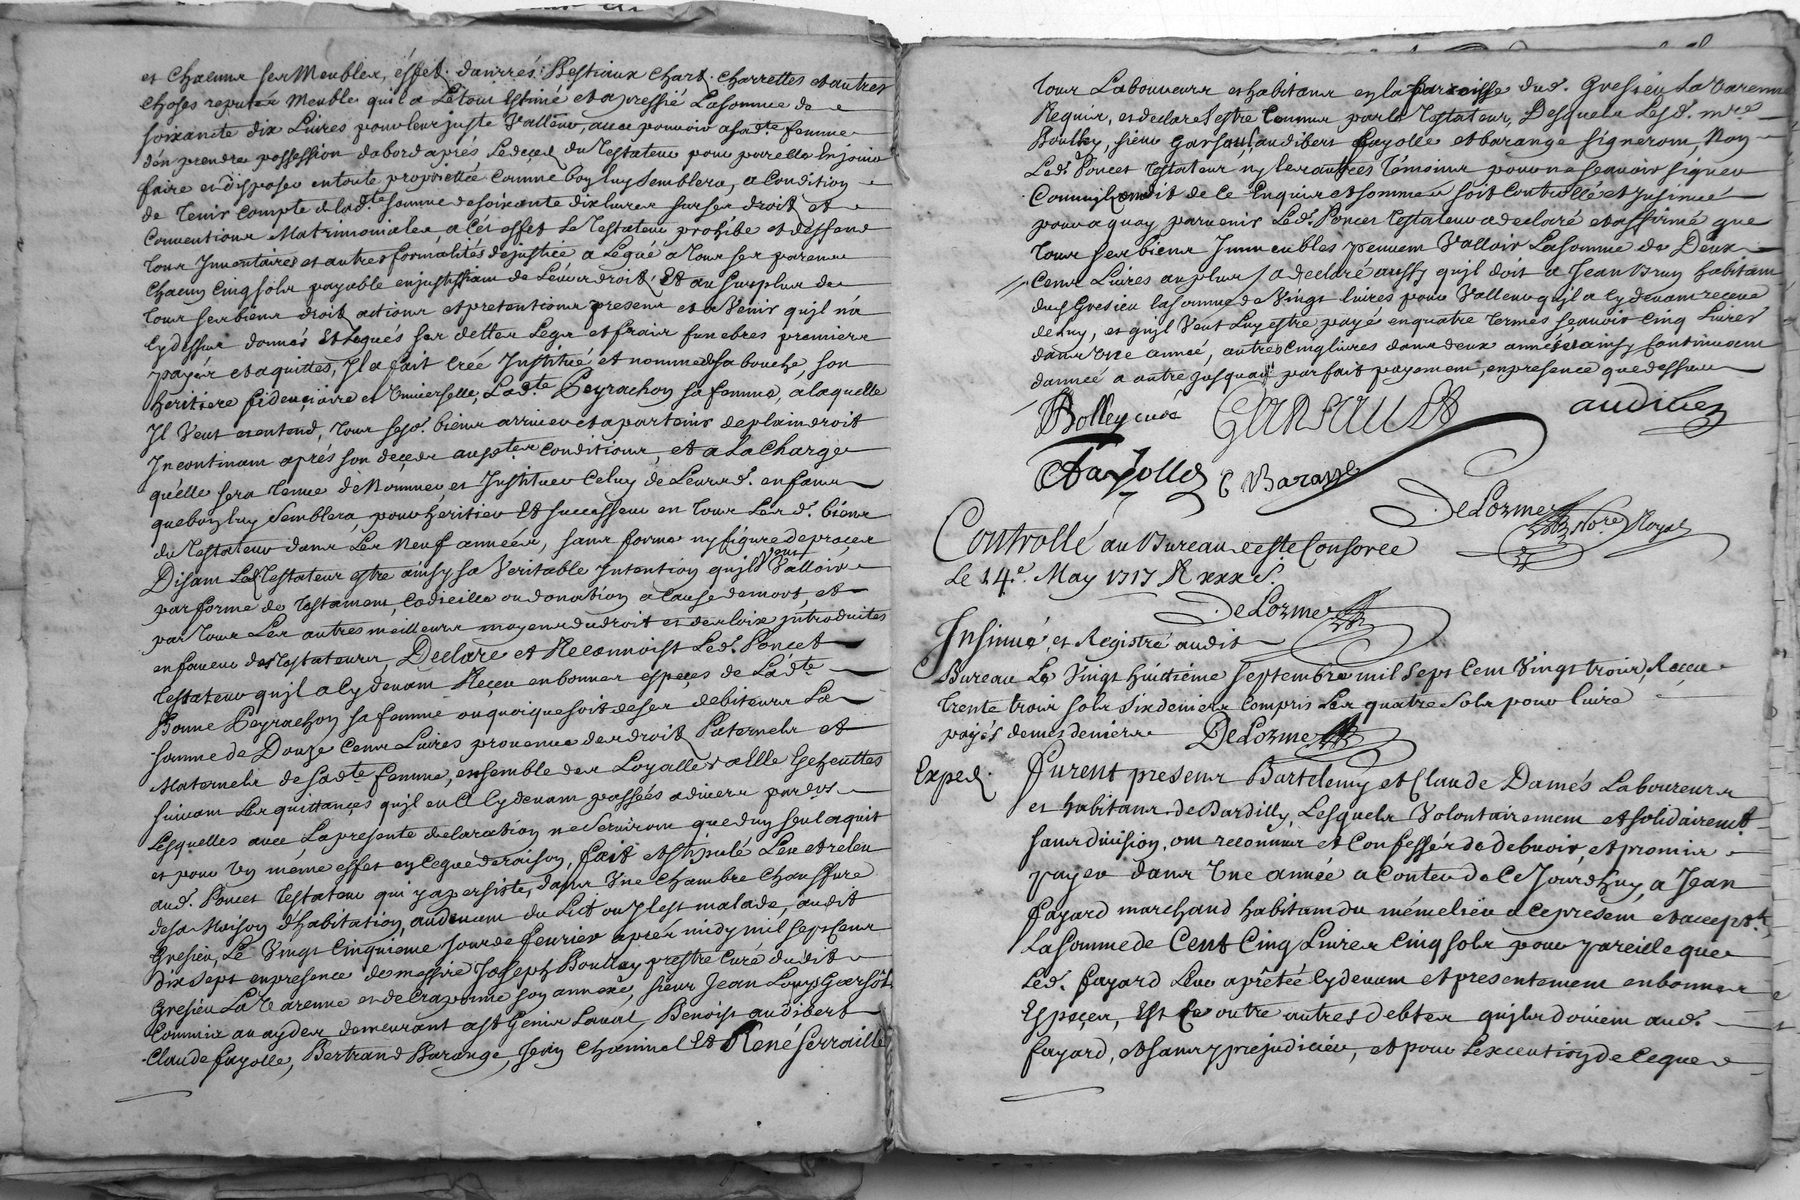 et chacuns ses Meubles, effet. danrrés. Bestiaux Chart. Charrettes et autres
choses reputés Meuble quil a Letout Estimé et apressié Lasomme de
soixante dix Livres pour leur juste Valleur, avec pouvoir asadte femme
den prendre possession dabord apres Ledeced du Testateur pour parelle Enjouir
faire et disposer en toute proprietté comme bon luy semblera, a Condition
de Tenir compte de lad.te somme de soixante dix livres sur ses droit et
Conventions Matrimoniales, a Cet effet le Testateur prohibe et deffend
tous Inventaires et autres formalités dejustice, a Legué a tous ses parens
Chacun Cinq sols payable enjustiffiant de Leur droit. Et au surplus de
tous ses biens droit actions et pretentions presens et a Venir quil n'a
Cydessus donnés et Legués ses dettes Legs et frais funebres premiers
payés et aquittes, Jl a fait Créé Institué et nommé desa bouche, son
heritiere fideuciaire et Universelle, Lad.te Peyrachon sa femme, a laquelle
Jl Veut et entend, tous sesd. biens arriver et apartenir deplaindroit
Incontinant aprés son deceds aux.tes conditions, et a La charge
quelle sera tenue de Nommer et Instituer Celuy de Leurs d. enfans
que bon luy Semblera, pour heritier et successeur en tous Lesd. biens
du Testateur dans Les Neuf années, sans forme ny figure de proces
Disant Led Testateur estre ainsy sa Veritable Intention quil Veut Valloir
par forme de Testament, Codicille ou donation a Cause de mort, et
par tous Les autres meilleurs moyens du droit et des loix introduites
en faveur des Testateurs, Declare et Reconnoist Led. Poncet
Testateur quil a Cydevant Reçeu en bonnes especes de Ladte
Bonne Peyrachon sa femme ou quoique soit de ses debiteurs La
somme de Douze Cens Livres provenue des droit Paternels et
Maternels de sadte femme, ensemble des Loyalles a Elle Escheuttes
suivant Les quittances quil en a Cydevant passées adivers pardvs
Lesquelles avec La presente declaration ne Serviront que dun seul aquit
et pour un méme effet en Ceque deraison, fait et stipulé Leu et releu
aud. Poncet Testateur qui y apersisté, dans Une Chambre Chauffure
desa Maison d'habitation, audevant du Lict ou Jl est malade, audit
Gresieu, Le Vingt Cinquieme Jour de fevrier aprés midy mil septcens
dix sept en presence de messire Joseph Boulley prestre Curé dudit
Gresieu La Varenne et de Craponne son annexe, sieur Jean Louys Garsault
Commis au aydes demeurant a St Genis Laval, Benoist audibert
Claude fayolle, Bertrand Barange, Jean Chaminel et René serraille
tous Laboureurs et habitans en la parroisse dud. Gresieu La Varenne
Requis, et declare estre Connus par le Testateur, Desquels Lesd. mre
Boulley, sieur Garsault, audibert fayolle et barange signeront Non
Led. Poncet Testateur ny les autres témoins pour ne sçavoir signer
Comme jl ont dit de Ce Enquis et sommés soit controllé et Insinué
pour a quoy parvenir Led. Poncet Testateur a declaré et affirmé que
tous ses biens Immeubles peuvent Valloir La somme de Deux
Cens Livres au plus / a declaré aussy quil doit a Jean brun habitant
dud Gresieu la somme de Vingt livres pour Valleur quil a Cydevant receue
de luy, et quil Veut luy estre payé en quatre termes sçavoir Cinq Livres
dans Une année, autres Cinq livres dans deux années et ainsy Continuant
dannée a autre jusquau parfait payement, en presence que dessus
Bolley curé GARSAULT audiber
C fayolle C Barange
DeLorme Nore Royal
Controllé au Bureau de ste Consorce
Le 14e. May 1717 R xxx s.
DeLorme
Insinué, et Registré audit
Bureau Le Vingt huittiéme septembre mil sept Cent Vingt trois, Receu
trente trois sols six deniers Compris Les quatre sols pour livre
payés de mes deniers DeLorme
Exped. furent presens Bartelemy et Claude Damés Laboureurs
et habitans de Dardilly, Lesquels Volontairement et solidairemt.
sans division, ont reconnus et Confessés de debvoir, et promis
payer dans Une année a Conter de Ce Jourdhuy, a Jean
fayard marchand habitant du méme lieu a Ce present et accept.t
La somme de Cent Cinq Livres Cinq sols pour pareille que
Led. fayard Leur a prêtée Cydevant et presentement en bonnes
Especes, Et Ce outre autres debtes quils doivent aud.
fayard, et sans y prejudicier, et pour Lexecution de Ceque